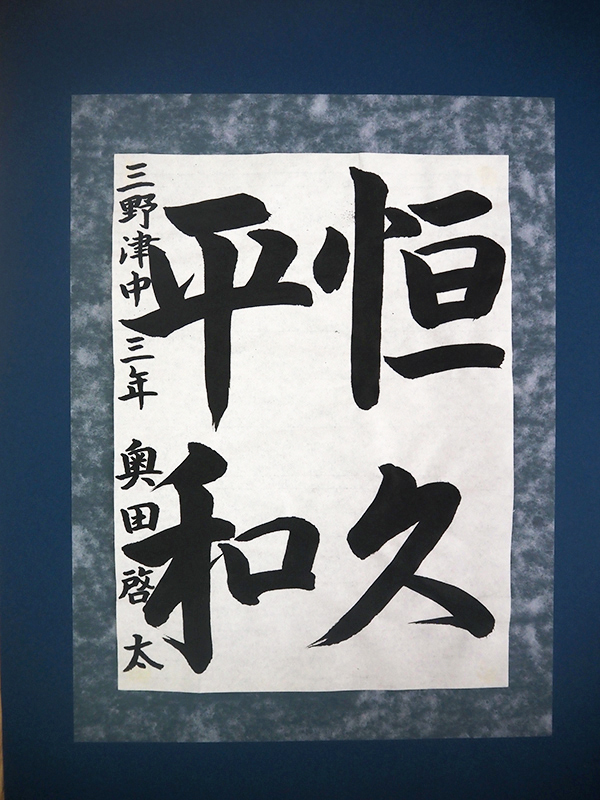 恒久
平和
三野津中 三年 奥田啓太